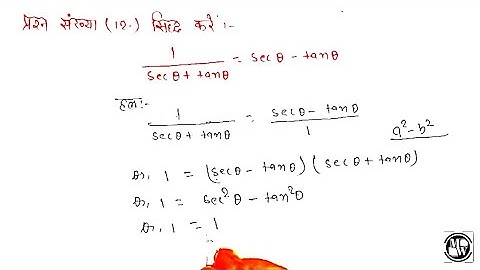 प्रश्न संख्या (12.) सिद्ध करें :-
1 / (secθ + tanθ) = secθ - tanθ
हल:-
1 / (secθ + tanθ) = (secθ - tanθ) / 1
a²-b²
या, 1 = (secθ - tanθ) (secθ + tanθ)
या, 1 = sec²θ - tan²θ
या, 1 = 1